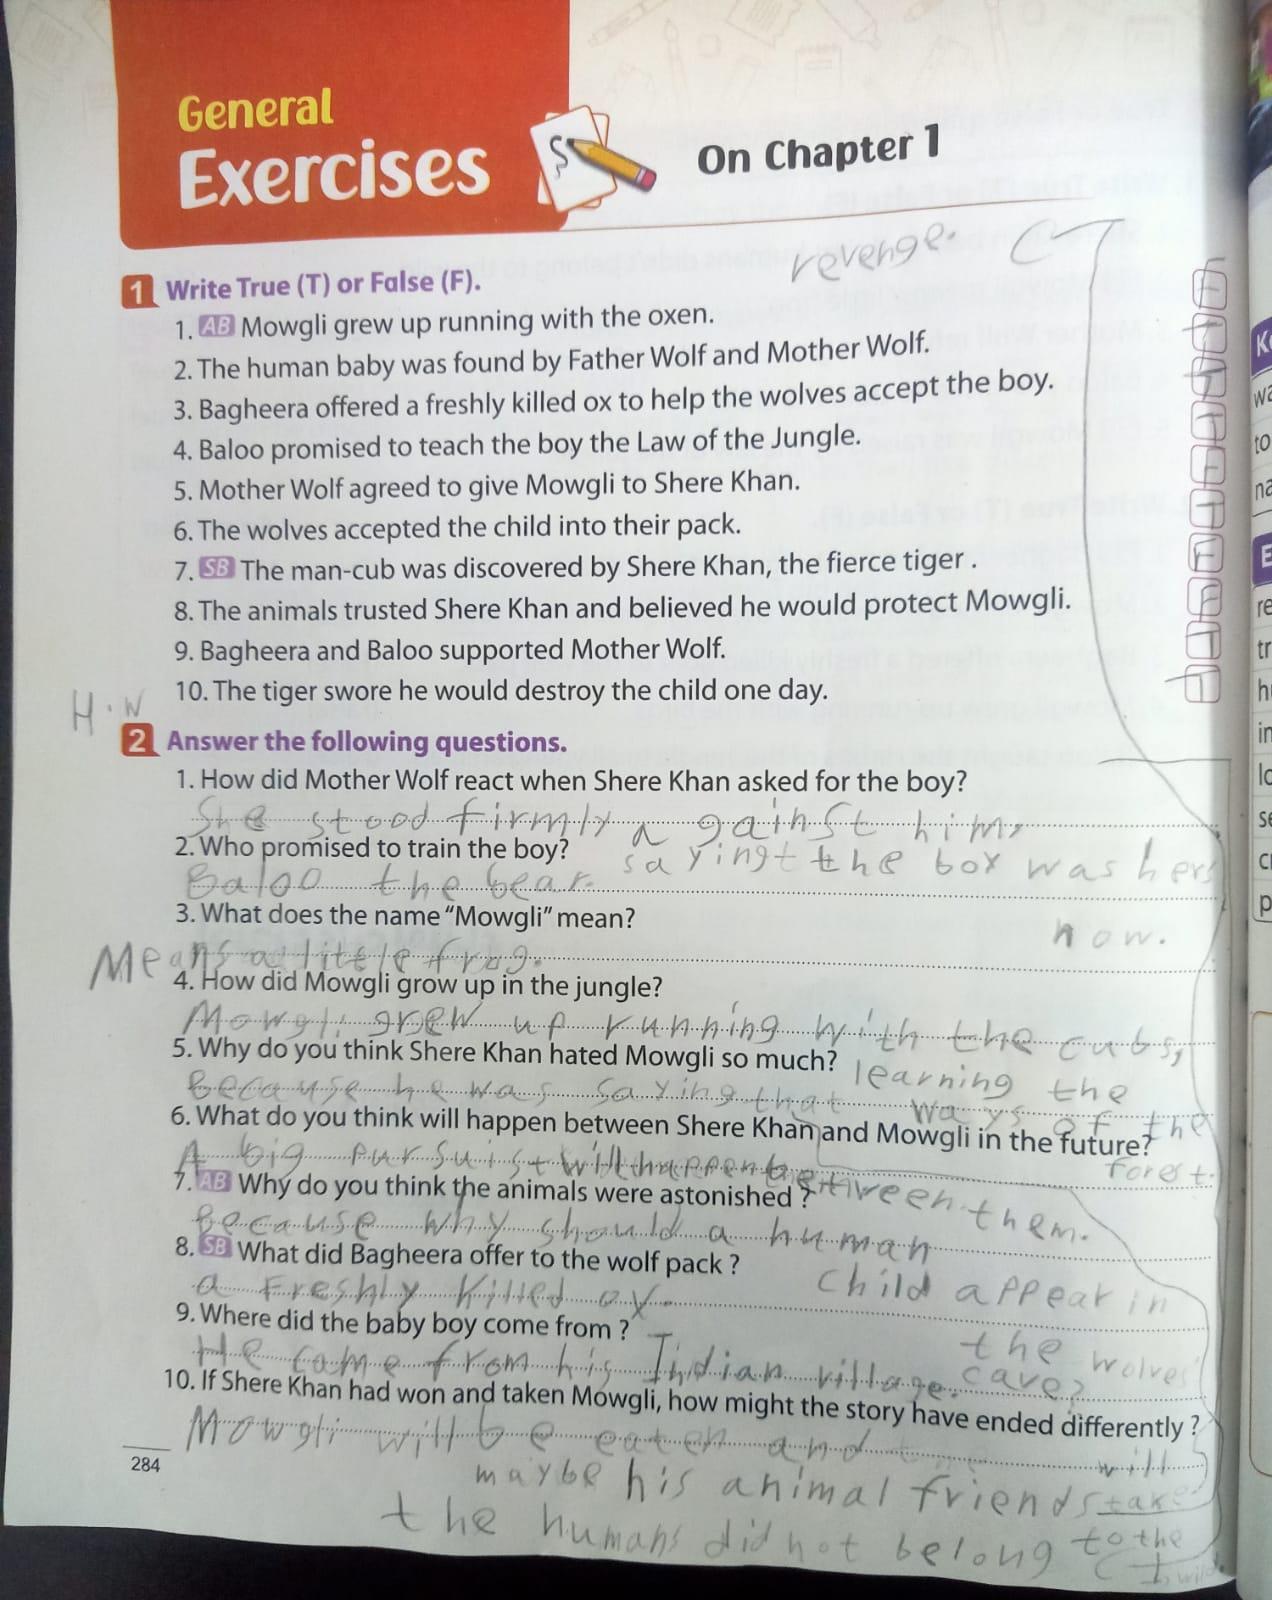 General
Exercises
On Chapter 1
revenge.
1 Write True (T) or False (F).
1. AB Mowgli grew up running with the oxen. F
2. The human baby was found by Father Wolf and Mother Wolf. T
3. Bagheera offered a freshly killed ox to help the wolves accept the boy. T
4. Baloo promised to teach the boy the Law of the Jungle. T
5. Mother Wolf agreed to give Mowgli to Shere Khan. F
6. The wolves accepted the child into their pack. T
7. SB The man-cub was discovered by Shere Khan, the fierce tiger. F
8. The animals trusted Shere Khan and believed he would protect Mowgli. F
9. Bagheera and Baloo supported Mother Wolf. T
10. The tiger swore he would destroy the child one day. T
H.W
2 Answer the following questions.
1. How did Mother Wolf react when Shere Khan asked for the boy?
She stood firmly against him,
saying the boy was hers
now.
2. Who promised to train the boy?
Baloo the bear.
3. What does the name "Mowgli" mean?
Means a little frog.
4. How did Mowgli grow up in the jungle?
Mowgli grew up running with the cubs,
learning the
ways of the
forest.
5. Why do you think Shere Khan hated Mowgli so much?
Because he was saying that
6. What do you think will happen between Shere Khan and Mowgli in the future?
A big pursuist will happen between them.
7. AB Why do you think the animals were astonished ?
Because why should a human
child appear in
the wolves'
cave?
8. SB What did Bagheera offer to the wolf pack ?
a Freshly killed ox.
9. Where did the baby boy come from ?
He came from his Indian village.
10. If Shere Khan had won and taken Mowgli, how might the story have ended differently ?
Mowgli will be eaten and will
maybe his animal friends take
the humans did not belong to the
284